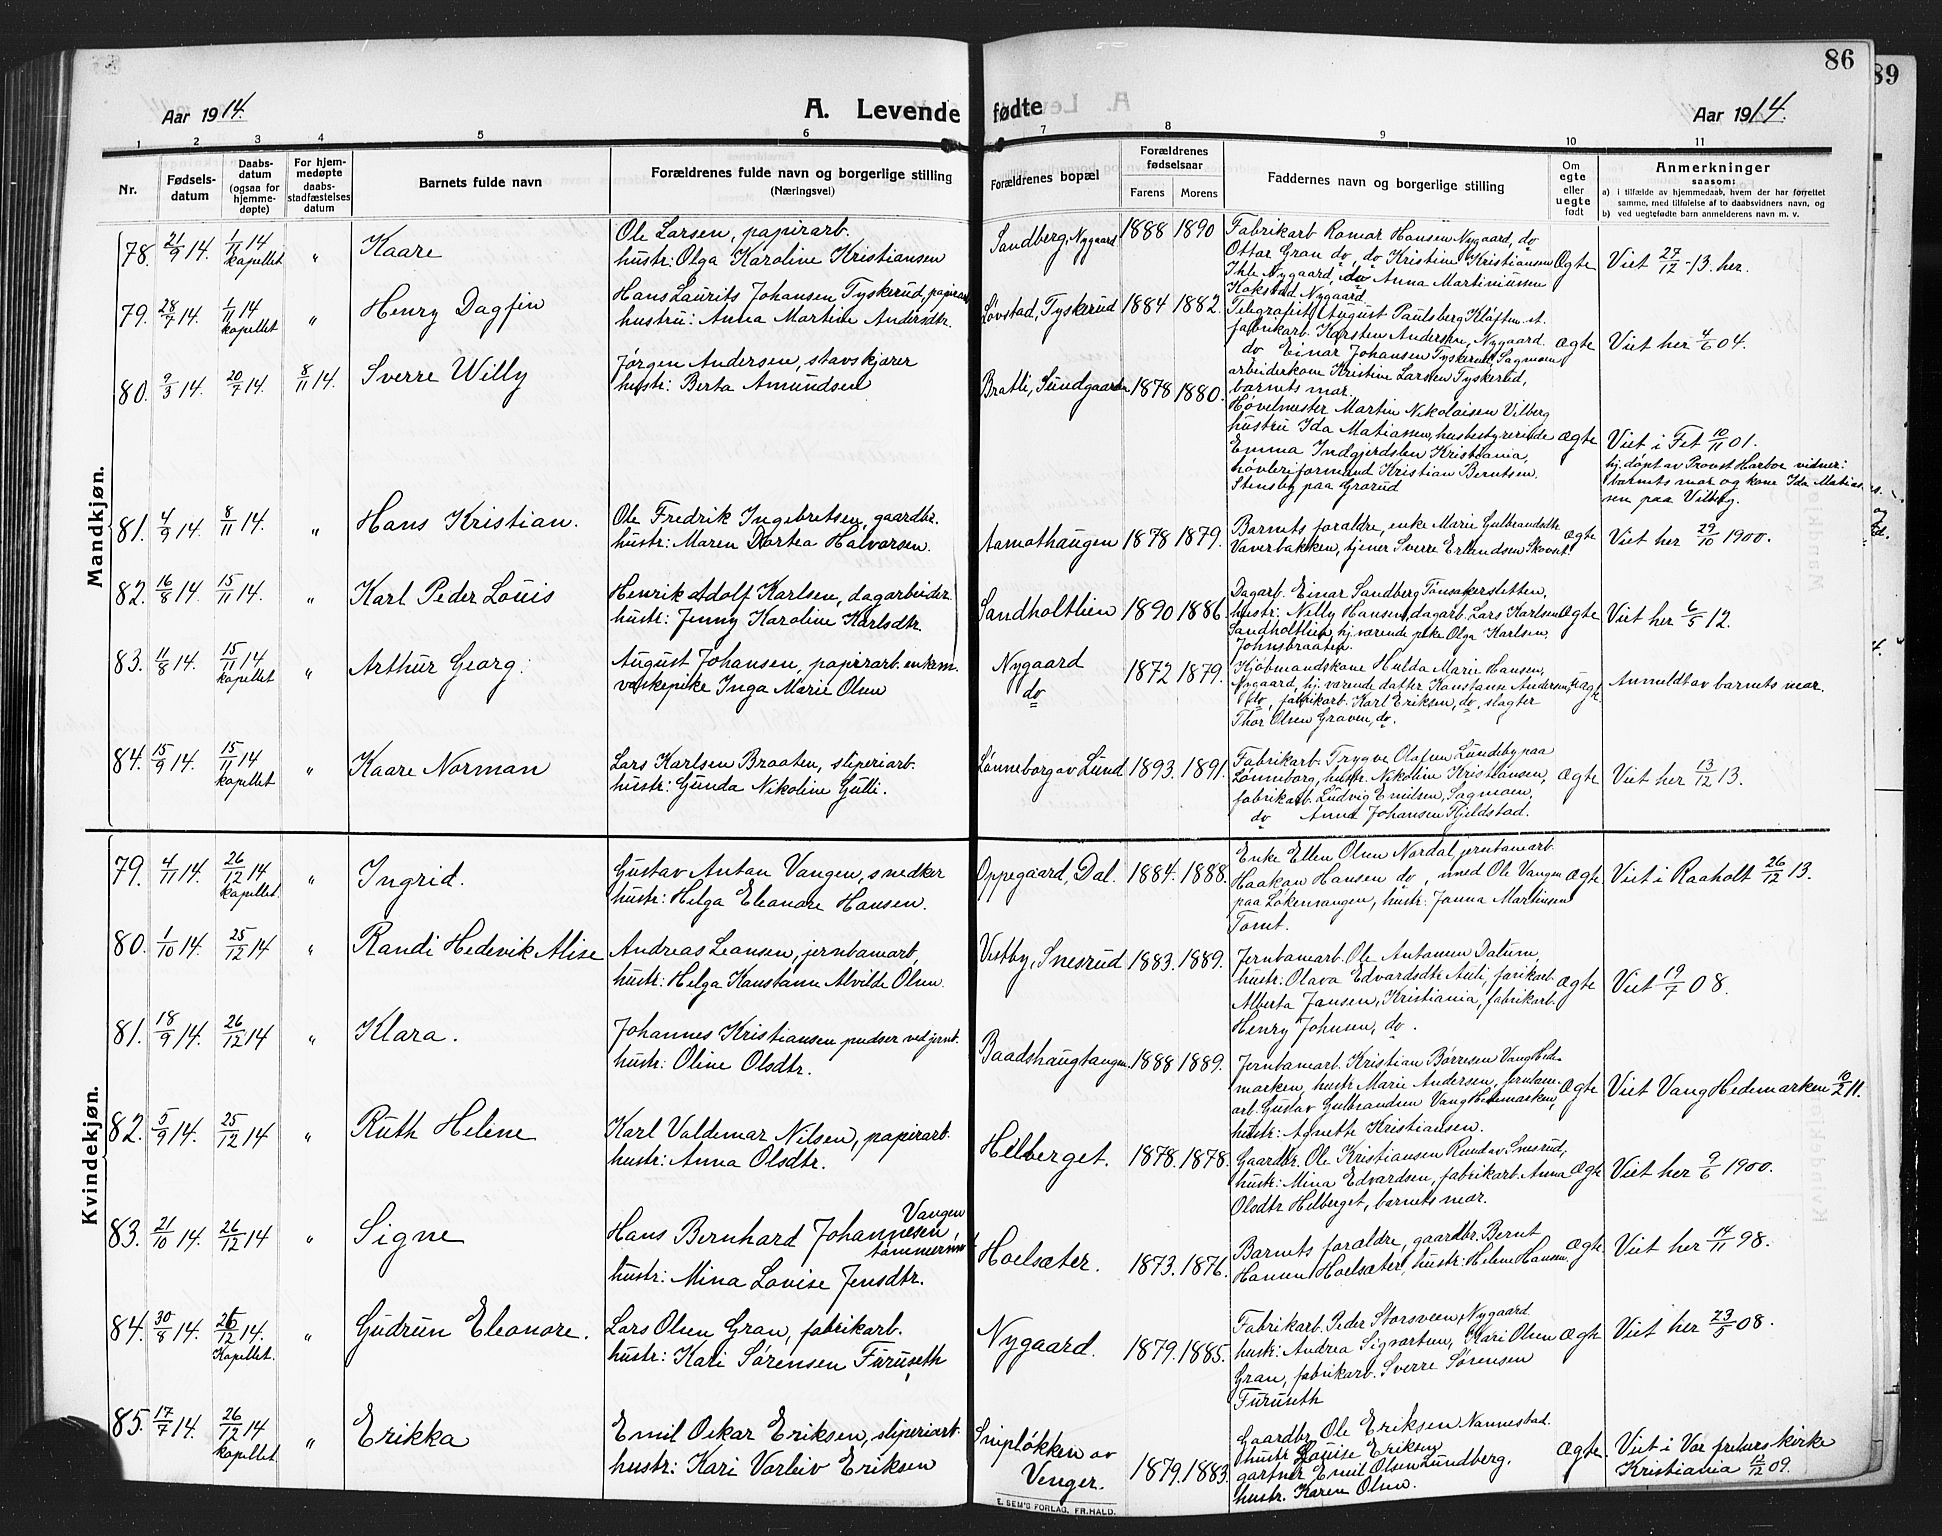 86
89
Aar 1914.
A. Levende fødte
Aar 1914.
1 2 3 4 5 6 7 8 9 10 11
Nr.
Fødselsdatum
Daabsdatum (ogsaa for hjemmedøpte)
For hjemmedøpte daabsstadfæstelses datum
Barnets fulde navn
Forældrenes fulde navn og borgerlige stilling
(Næringsvei)
Forældrenes bopæl
Forældrenes fødselsaar
Farens Morens
Faddernes navn og borgerlige stilling
Om egte eller uegte født
Anmerkninger
saasom:
a) i tilfælde av hjemmedaab, hvem der har forrettet samme, med tilføielse af to daabsvidners navn, og
b) ved uegtefødte barn anmelderens navn m. v.
Mandkjøn.
78. 21/9 14. 1/11 14 kapellet " Kaare
Ole Larsen, papirarb.
hustr: Olga Karoline Kristiansen
Sandberg, Nygaard 1888 1890
Fabrikarb Ramar Hansen Nygaard, do
Ottar Gran do, do Kristine Kristiansen
Ihle Nygaard, do Anna Martiniussen
Kokstad Nygaard
Ægte Viet 27/12 -13. her.
79. 28/7 14. 1/11 14 kapellet " Henry Dagfin
Hans Laurits Johansen Tyskerud, papirarb
hustru: Anna Martine Andersdtr.
Løvstad, Tyskerud 1884 1882.
Telegrafist August Paulsberg Kløften st.
fabrikarb. Karsten Andersen, Nygaard.
do Einar Johansen Tyskerud Sagmoen
arbeiderkone Kristine Larsen Tyskerud,
barnets mor.
Ægte Viet her 4/6 04.
80. 9/3 14. 20/7 14. 8/11 14. Sverre Willy
Jørgen Andersen, stavskjærer
hustr: Berta Amundsen
Bratli, Sundgaarden 1878 1880.
Høvelmester Martin Nikolaisen Vilberg
hustru Ida Matiassen, husbestyrerinde
Emma Indgjerdslen Kristiania,
høvleriformand Kristian Berntsen
Stensby paa Grorud
Ægte Viet i Fet 10/11 01.
hj. døpt av Provst Harboe vidner:
barnets mor og kone Ida Matias-
sen paa Vilberg.
81. 4/9 14. 8/11 14. " Hans Kristian.
Ole Fredrik Ingebretsen, gaardbr.
hustr: Maren Dortea Halvorsen.
Aamothaugen 1878 1879.
Barnets foraldre, enke Marie Gulbrandsdtr
Vaverbakken, tjener Sverre Erlandsen Skovst
Ægte Viet her 29/10 1900.
82. 16/8 14. 15/11 14. " Karl Peder Louis
Henrik Adolf Karlsen, dagarbeider
hustr: Jenny Karoline Karlsdtr.
Sandholtlien 1890 1886.
Dagarb. Einar Sandberg Tønsakersletten,
hustr: Nelly Hansen, dagarb. Lars Karlsen
Sandholtlien hj. værende pike Olga Karlsen,
Johnsbraaten.
Ægte Viet her 6/5 12.
83. 11/8 14. 15/11 14 kapellet " Arthur Georg.
August Johansen, papirarb. enkem.
vaskepike Inga Marie Olsen
Nygaard
do
1872 1879.
Kjøbmandskone Hulda Marie Hansen,
Nygaard, hj. værende datter Konstanse Andersen,
do, fabrikarb. Karl Eriksen, do, slagter
Thor Olsen Graven, do.
uægte. Anmeldt av barnets mor.
84. 15/9 14. 15/11 14 kapellet " Kaare Norman
Lars Karlsen Braaten, sliperiarb.
hustr: Gunda Nikoline Gulli.
Lønneborg av Lund 1893. 1891.
Fabrikarb. Trygve Olafsen Lundeby paa
Lønneborg, hustr. Nikoline Kristiansen,
fabrikarb. Ludvig Emilsen, Sagmoen,
do Anna Johansen Kjeldstad.
Ægte Viet her 13/12 13.
Kvindekjøn.
79. 4/11 14. 26/12 14 kapellet. " Ingrid.
Gustav Anton Vangen, snedker
hustr: Helga Eleonore Hansen.
Oppegaard, Dal. 1884. 1888.
Enke Ellen Olsen Nordal, jernbanarb.
Haakon Hansen do, smed Ole Vangen
paa Løkensvangen, hustr: Janna Martinsen
Tomt.
Ægte Viet i Raaholt 26/12 13.
80. 1/10 14. 25/12 14 " Randi Hedevik Alise
Andreas Leansen, jernbanarb,
hustr: Helga Konstanse Alvilde Olsen.
Vestby, Snesrud 1883. 1889.
Jernbanarb. Ole Antonsen Datum,
hustr: Olava Edvardsdtr Auli, farikarb.
Alberta Jansen, Kristiania, fabrikarb.
Henry Johnsen, do.
Ægte Viet 19/7 08.
81. 18/9 14. 26/12 14 " Klara.
Johannes Kristiansen pudser ved jernb.
hustr: Oline Olsdtr.
Baadshaugtangen. 1888 1889.
Jernbanarb. Kristian Børresen Vang Hede-
marken, hustr. Marie Andersen, jernban-
arb. Gustav Gulbrandsen Vang Hedemarken,
hustr: Agnette Kristiansen.
Ægte Viet Vang Hedemarken 10/2 11.
82. 5/9 14. 25/12 14 " Ruth Helene
Karl Valdemar Nilsen, papirarb.
hustr: Anna Olsdtr.
Helberget. 1878. 1878.
Gaardbr. Ole Kristiansen Rud av Snesrud,
hustr: Mina Edvardsen, fabrikarb. Anna
Olsdtr Helberget, barnets mor.
Ægte Viet her 9/6 1900.
83. 21/10 14. 26/12 14 " Signe
Hans Bernhard Johannesen Vangen,
tømmerm
hustr: Mina Lovise Jensdtr.
Hoelsæter. 1873. 1876.
Barnets foraldre, gaardbr. Bernt
Hansen Hoelsæter, hustr: Helene Hansen,
Ægte Viet her 14/11 98.
84. 30/8 14. 26/12 14. Kapellet. " Gudrun Eleonore.
Lars Olsen Gran, fabrikarb.
hustr: Kari Sørensen Furuseth
Nygaard. 1879. 1885.
Fabrikarb. Peder Storsveen, Nygaard
hustr: Andrea Sigvartsen, Kari Olsen
Gran, fabrikarb. Sverre Sørensen
Furuseth
Ægte Viet her 23/5 08.
85. 17/7 14. 26/12 14 kapellet " Erikka
Emil Oskar Eriksen, sliperiarb.
hustr: Kari Vorleiv Eriksen
Snipløkken av
Venger.
1879. 1883.
Gaardbr Ole Eriksen Nannestad.
hustr Louise Eriksen
gartner Emil Olsen Lundberg,
hustr. Karen Olsen.
Ægte. Viet i Vor frelsers kirke
Kristiania 12/12 09.
E. SEM'S FORLAG, FR.HALD.